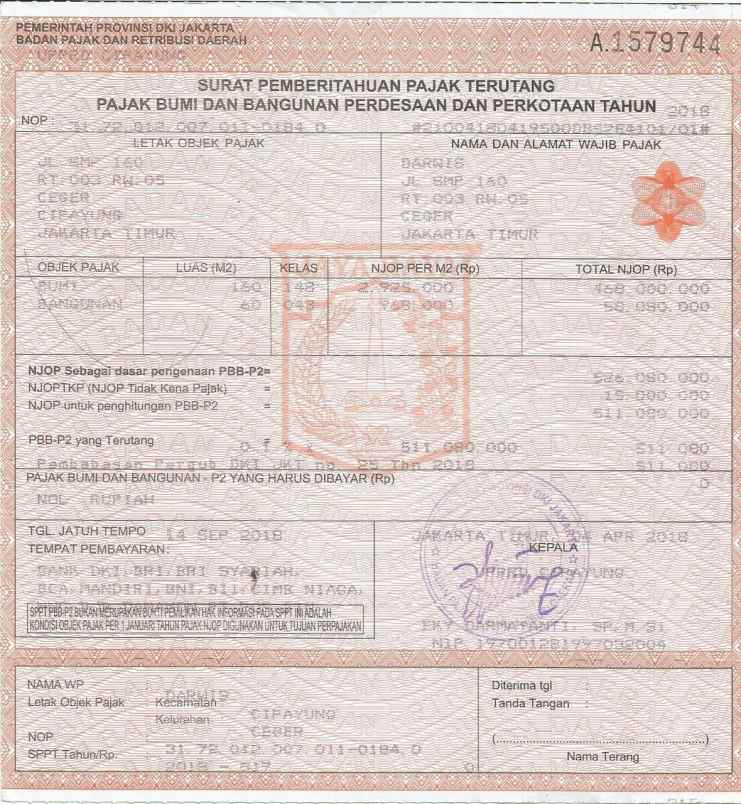 PEMERINTAH PROVINSI DKI JAKARTA
BADAN PAJAK DAN RETRIBUSI DAERAH
UPPRD CIPAYUNG
A.1579744
SURAT PEMBERITAHUAN PAJAK TERUTANG
PAJAK BUMI DAN BANGUNAN PERDESAAN DAN PERKOTAAN TAHUN 2018
NOP : 31 72 012 007 011-0184 0
LETAK OBJEK PAJAK
JL SMP 160
RT.003 RW.05
CEGER
CIPAYUNG
JAKARTA TIMUR
NAMA DAN ALAMAT WAJIB PAJAK
DARWIS
JL SMP 160
RT.003 RW.05
CEGER
JAKARTA TIMUR
OBJEK PAJAK LUAS (M2) KELAS NJOP PER M2 (Rp) TOTAL NJOP (Rp)
BUMI 160 148 2.925.000 468.000.000
BANGUNAN 60 048 968.000 58.080.000
NJOP Sebagai dasar pengenaan PBB-P2= 526.080.000
NJOPTKP (NJOP Tidak Kena Pajak) = 15.000.000
NJOP untuk penghitungan PBB-P2 = 511.080.000
PBB-P2 yang Terutang 0,1 % x 511.080.000 511.080
Pembebasan Pergub DKI JKT no. 25 Thn 2018 511.080
PAJAK BUMI DAN BANGUNAN - P2 YANG HARUS DIBAYAR (Rp) 0
NOL RUPIAH
TGL. JATUH TEMPO : 14 SEP 2018
TEMPAT PEMBAYARAN:
BANK DKI,BRI,BRI SYARIAH,
BCA,MANDIRI,BNI,BII,CIMB NIAGA,
SPPT PBB-P2 BUKAN MERUPAKAN BUKTI PEMILIKAN HAK INFORMASI PADA SPPT INI ADALAH
KONDISI OBJEK PAJAK PER 1 JANUARI TAHUN PAJAK NJOP DIGUNAKAN UNTUK TUJUAN PERPAJAKAN
JAKARTA TIMUR, 04 APR 2018
KEPALA
UPPRD CIPAYUNG
EKY DARMAYANTI, SP,M.Si
NIP 197001281997032004
NAMA WP : DARWIS
Letak Objek Pajak : Kecamatan CIPAYUNG
Kelurahan CEGER
NOP : 31 72 012 007 011-0184 0
SPPT Tahun/Rp. : 2018 - 517 0
Diterima tgl :
Tanda Tangan :
(..........................................................)
Nama Terang